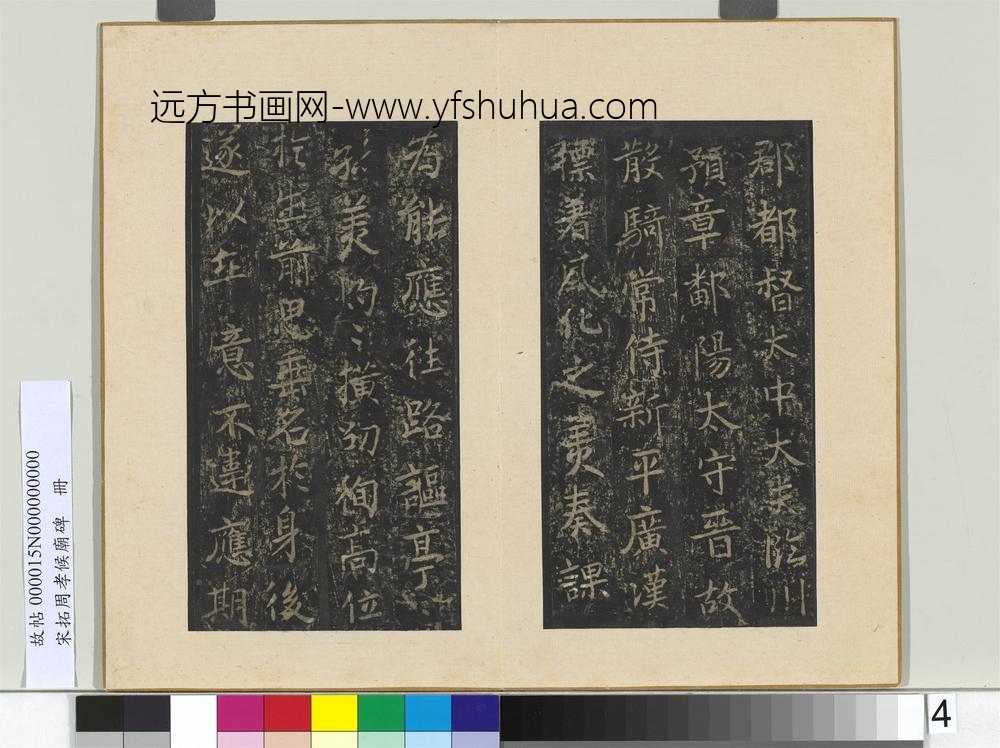 远方书画网-www.yfshuhua.com
郡都督太中大夫臨川
預章鄱陽太守晉故
散騎常侍新平廣漢
標著風化之美奏課
為能應往路謳亭
美劭徇高位
扵生前思垂名扵身後
遂以億不違應期
故帖 000015N000000000
宋拓周孝候廟碑 冊
4